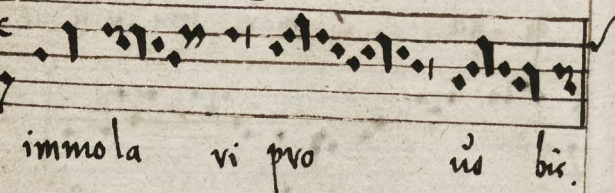 immola ri pro vo bis.